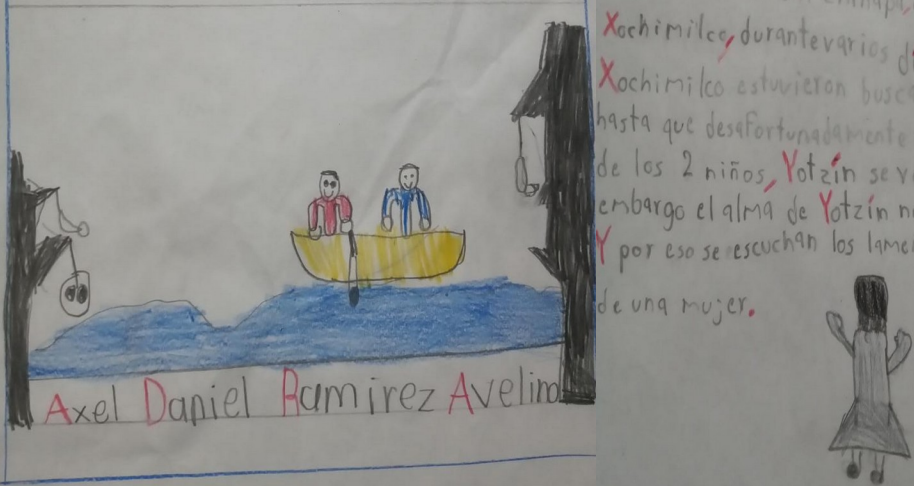 Axel Daniel Ramirez Avelino
Xochimilco, durante varios
Xochimilco estuvieron
hasta que desafortunadamente
de los 2 niños, Yotzín se
embargo el alma de Yotzín
Y por eso se escuchan los
de una mujer.